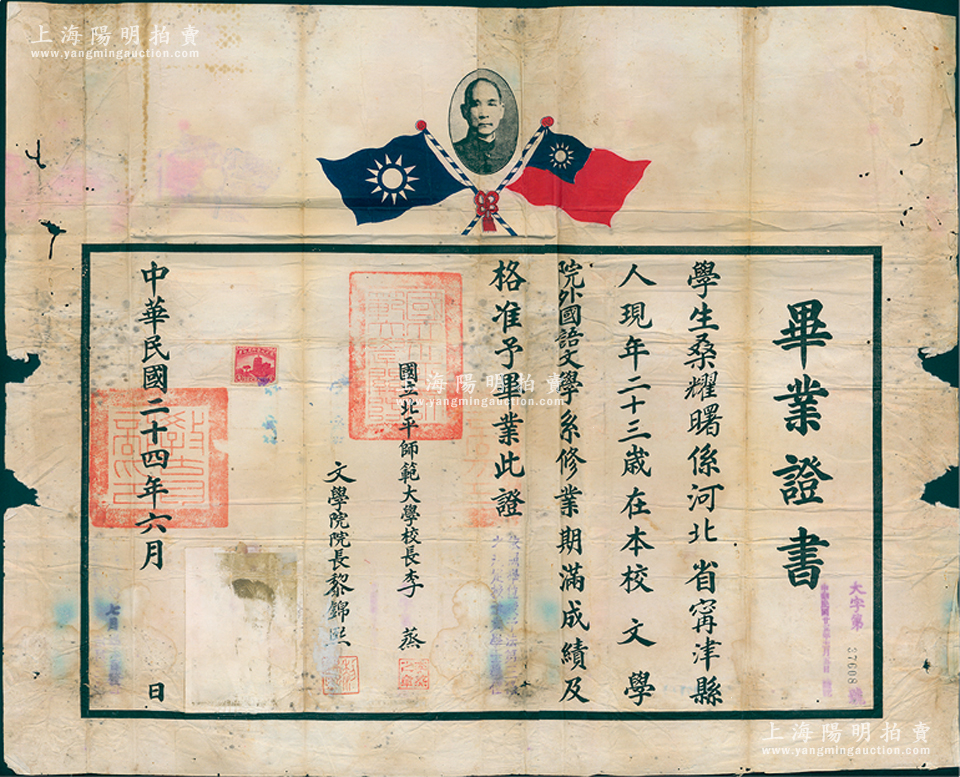 上海陽明拍賣
www.yangmingauction.com
畢業證書
大字第 37608 號
學生桑耀曙係河北省甯津縣
人現年二十三歲在本校文學
院外國語文學系修業期滿成績及
格准予畢業此證
國立北平師範大學校長李蒸
文學院院長黎錦熙
中華民國二十四年六月 日
上海陽明拍賣
www.yangmingauction.com
上海陽明拍賣
www.yangmingauction.com